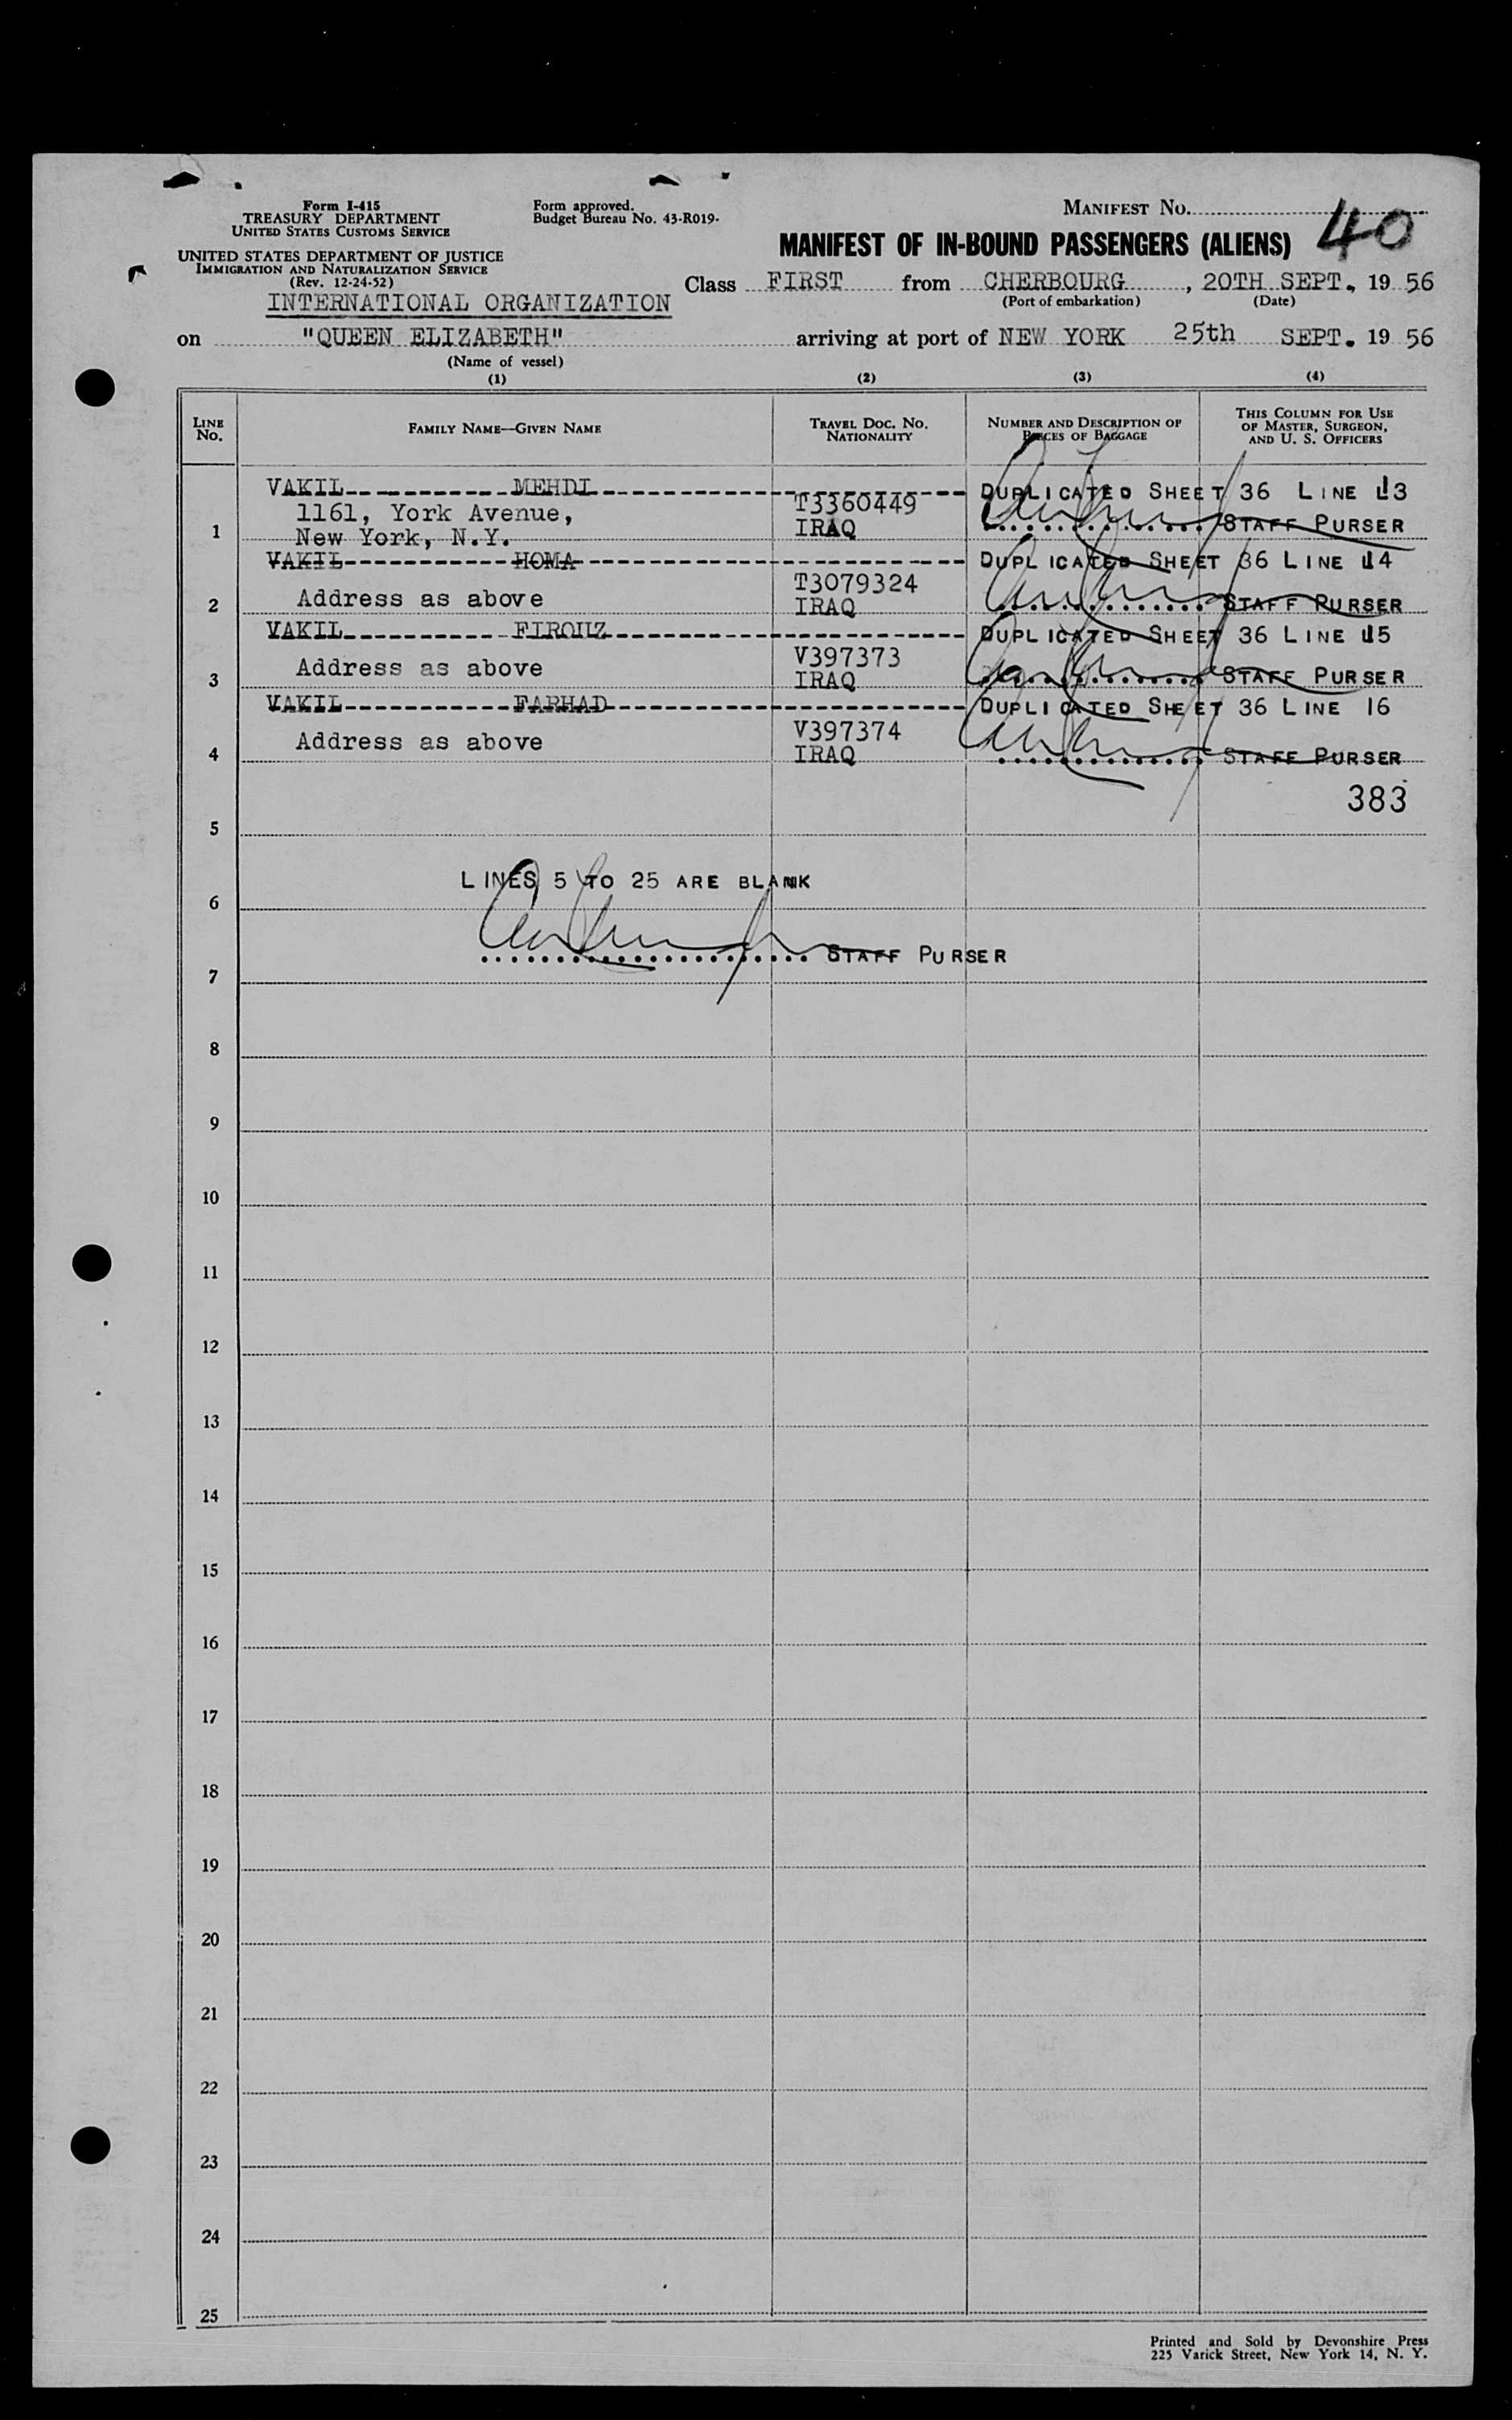 Form I-415
TREASURY DEPARTMENT
UNITED STATES CUSTOMS SERVICE
UNITED STATES DEPARTMENT OF JUSTICE
IMMIGRATION AND NATURALIZATION SERVICE
(Rev. 12-24-52)
Form approved.
Budget Bureau No. 43-R019-
MANIFEST No. 40
MANIFEST OF IN-BOUND PASSENGERS (ALIENS)
INTERNATIONAL ORGANIZATION
Class FIRST from CHERBOURG, 20TH SEPT. 19 56
(Port of embarkation) (Date)
on "QUEEN ELIZABETH" arriving at port of NEW YORK 25th SEPT. 19 56
(Name of vessel)
(1) (2) (3) (4)
LINE No. FAMILY NAME—GIVEN NAME TRAVEL DOC. NO. NATIONALITY NUMBER AND DESCRIPTION OF PIECES OF BAGGAGE THIS COLUMN FOR USE OF MASTER, SURGEON, AND U. S. OFFICERS
VAKIL MEHDI DUPLICATED SHEET 36 LINE 13
1161, York Avenue, T3360449
1 New York, N.Y. IRAQ STAFF PURSER
VAKIL HOMA DUPLICATED SHEET 36 LINE 14
T3079324
2 Address as above IRAQ STAFF PURSER
VAKIL FIROUZ DUPLICATED SHEET 36 LINE 15
V397373
3 Address as above IRAQ STAFF PURSER
VAKIL FARHAD DUPLICATED SHEET 36 LINE 16
V397374
4 Address as above IRAQ STAFF PURSER
383
5
LINES 5 TO 25 ARE BLANK
6
STAFF PURSER
7
8
9
10
11
12
13
14
15
16
17
18
19
20
21
22
23
24
25
Printed and Sold by Devonshire Press
225 Varick Street, New York 14, N. Y.